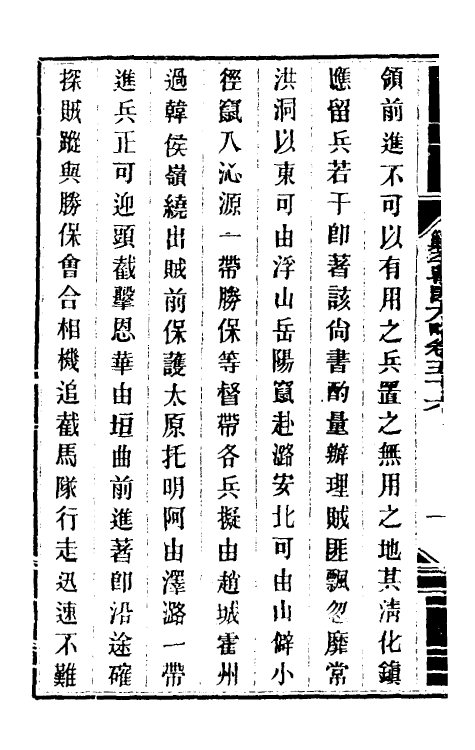 領前進不可以有用之兵置之無用之地其淸化鎭
應留兵若干卽著該尙書酌量辦理賊匪飄忽靡常
洪洞以東可由浮山岳陽竄赴潞安北可由山僻小
徑竄入沁源一帶勝保等督帶各兵擬由趙城霍州
過韓侯嶺繞出賊前保護太原托明阿由澤潞一帶
進兵正可迎頭截擊恩華由垣曲前進著卽沿途確
探賊蹤與勝保會合相機追截馬隊行走迅速不難
方略卷五十六
一